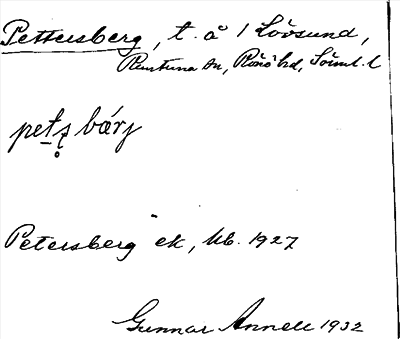 Pettersberg, t. å 1 Lövsund,
Runtuna sn, Rönö hd, Söml. l
pet̠ş̥ bárj
Petersberg ek, Mb. 1927
Gunnar Annell 1932